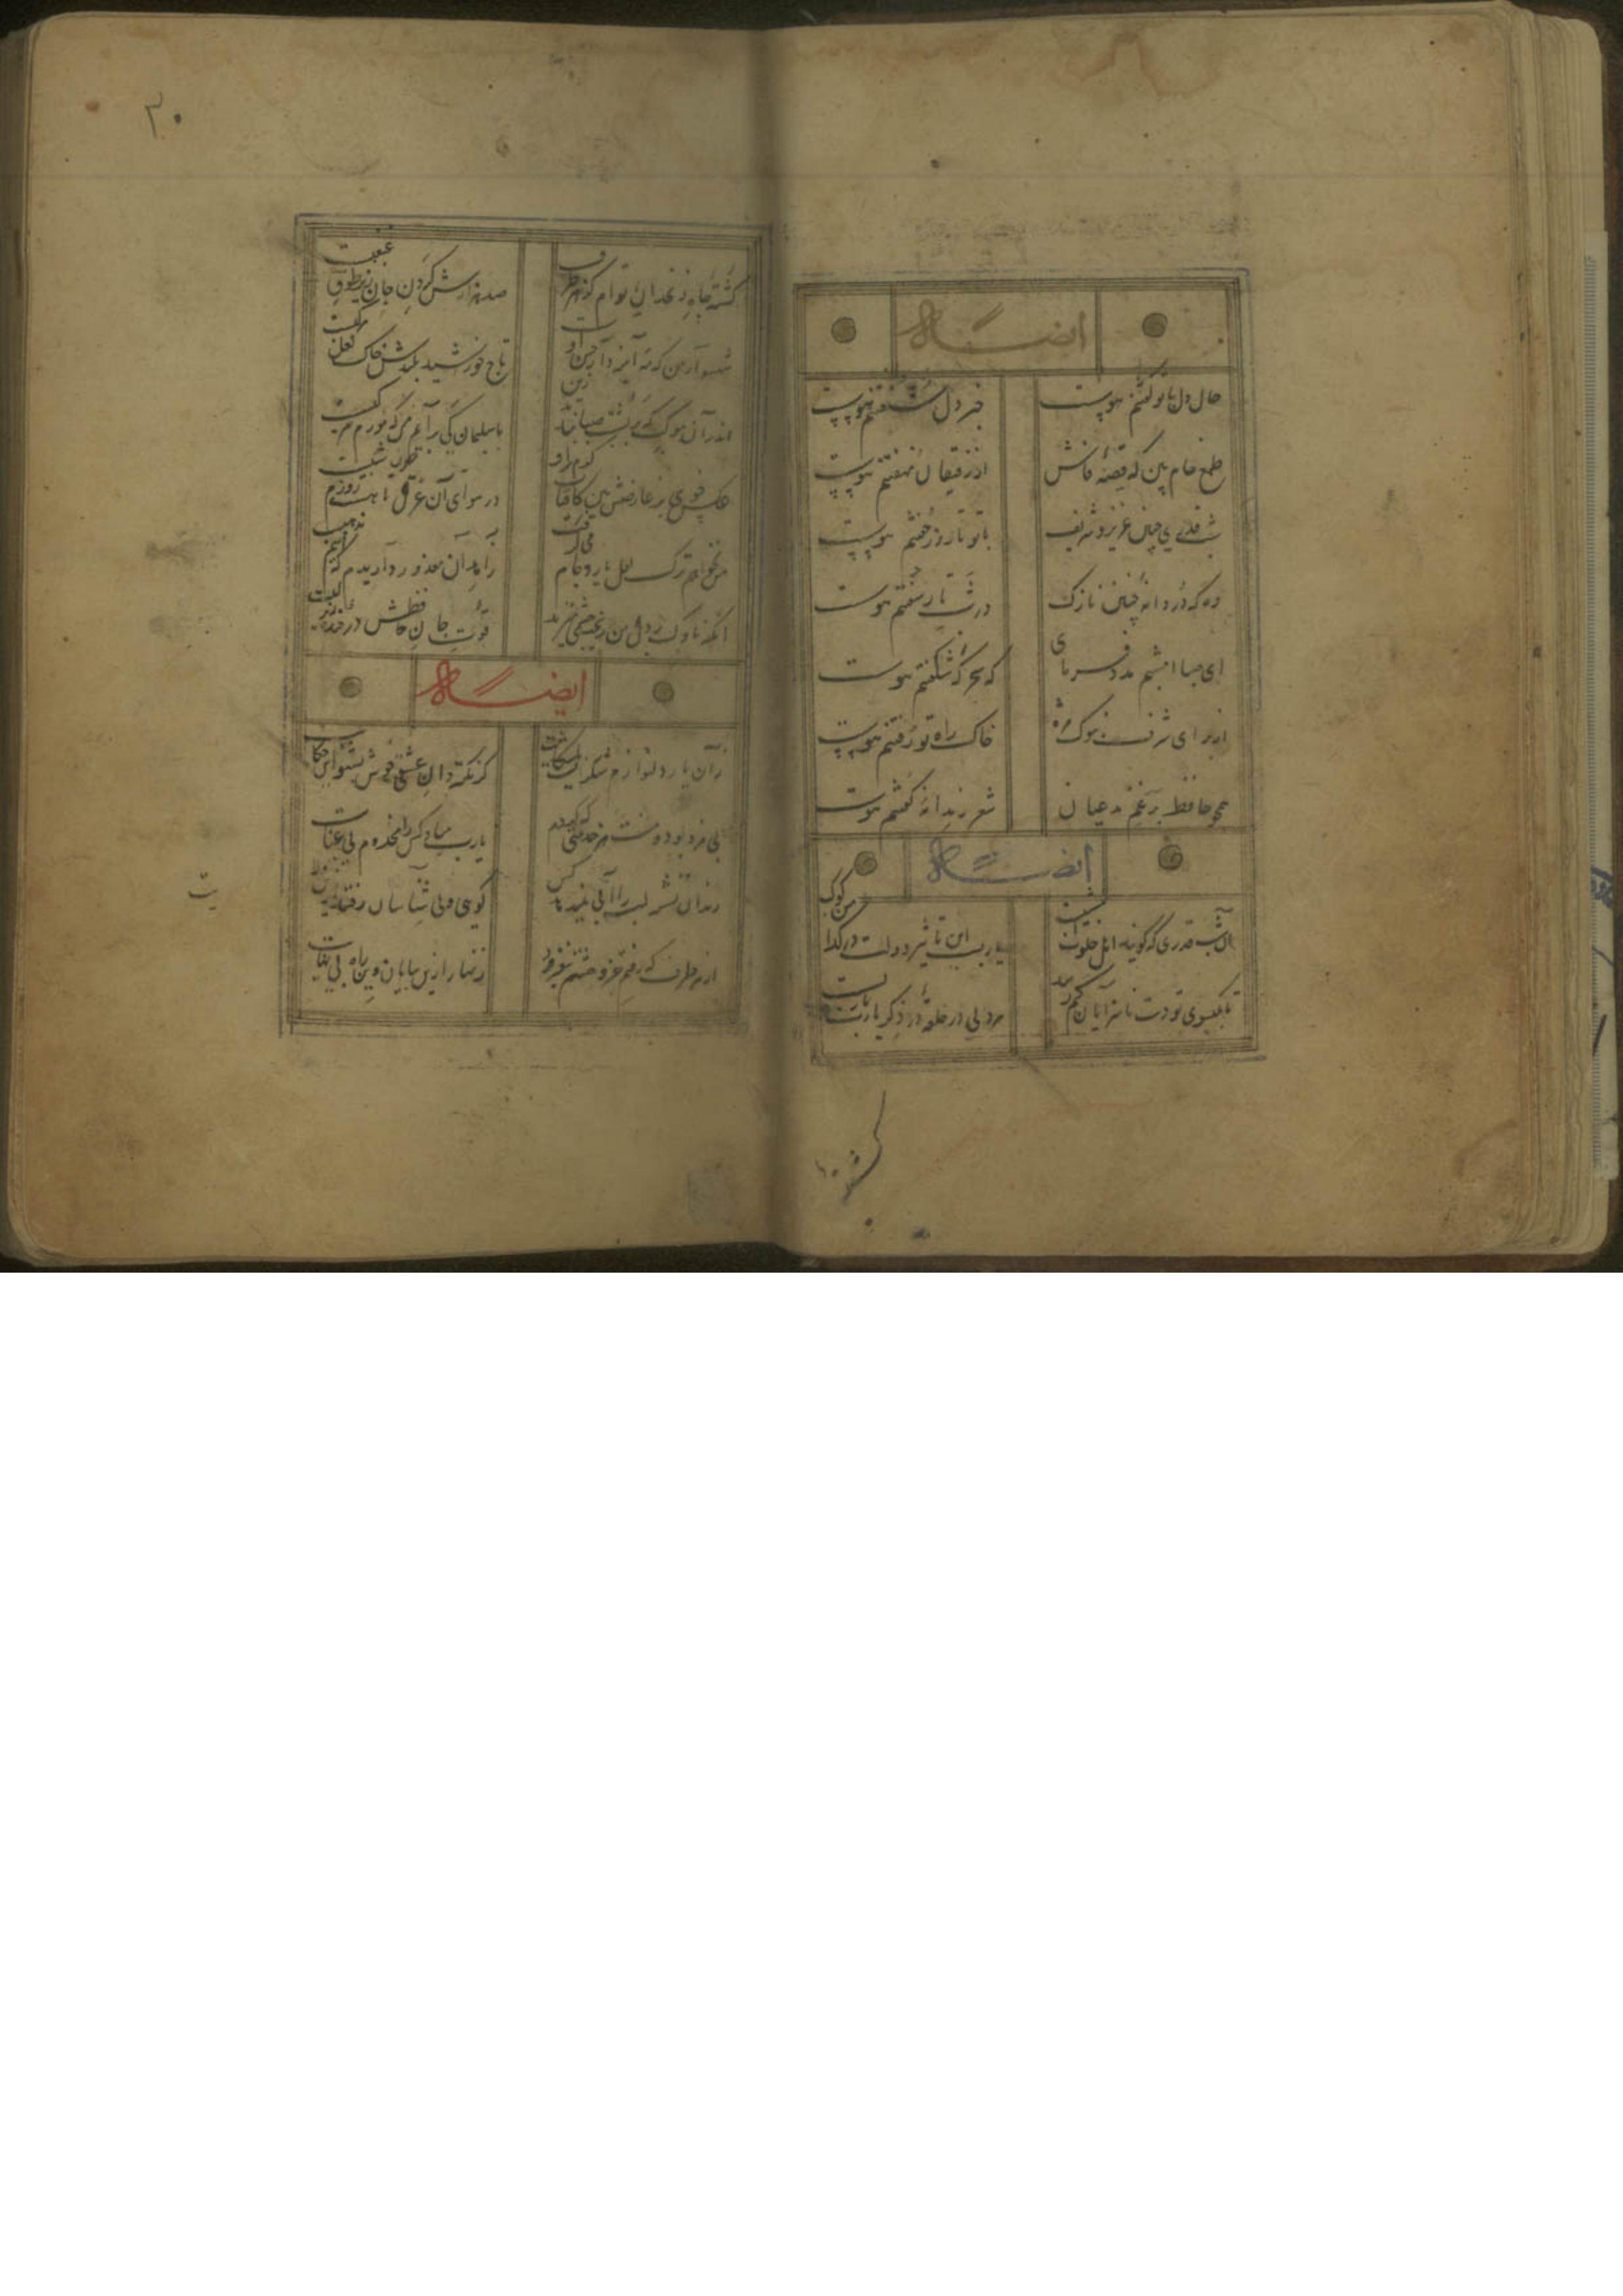 ایضاً له
حال دل با تو گفتنم هوست
خبر دل شنفتنم هوست
طمع خام بین که قصهٔ فاش
از رقیبان نهفتنم هوست
شب قدری چنین عزیز و شریف
با تو تا روز خفتنم هوست
وه که دُردانهٔ چنین نازک
در شب تار سفتنم هوست
ای صبا امشبم مدد فرمای
که سحرگه شکفتنم هوست
از برای شرف بنوک مژه
خاک راه تو رُفتنم هوست
همچو حافظ برغم مدعیان
شعر رندانه گفتنم هوست
ایضاً له
آن شب قدری که گویند اهل خلوت امشبست
یارب این تاثیر دولت در کدامین کوکبست
تا بگیسوی تو دست ناسزایان کم رسد
هر دلی در حلقهٔ در ذکر یاربست
۳۰
کشتهٔ چاه زنخدان توام کز هر طرف
صد هزارش گردن جان زیر طوق غبغبست
شهسوار من که مه آینه دار حسن اوست
تاج خورشید بلندش خاک نعل مرکبست
اندر آن موکب که بر پشت صبا بندند زین
با سلیمان کی برانم من که مورم مرکبست
عکس خوی بر عارضش بین کافتاب گرم رو
در هوای آن عرق تا هست روزش تبست
من نخواهم ترک لعل یار و جام می گرفت
زاهدان معذور داریدم که اینم مذهبست
آنکه ناوک بر دل من زیر چشمی میزند
قوت جان حافظش در خندهٔ زیر لبست
ایضاً له
زآن یار دلنوازم شکریست با شکایت
گر نکته دان عشقی خوش بشنو این حکایت
بی مزد بود و منت هر خدمتی که کردم
یارب مباد کس را مخدوم بی عنایت
رندان تشنه لب را آبی نمیدهد کس
گویی ولی شناسان رفتند ازین ولایت
از هر طرف که رفتم جز وحشتم نیفزود
زنهار ازین بیابان وین راه بی نهایت
یت